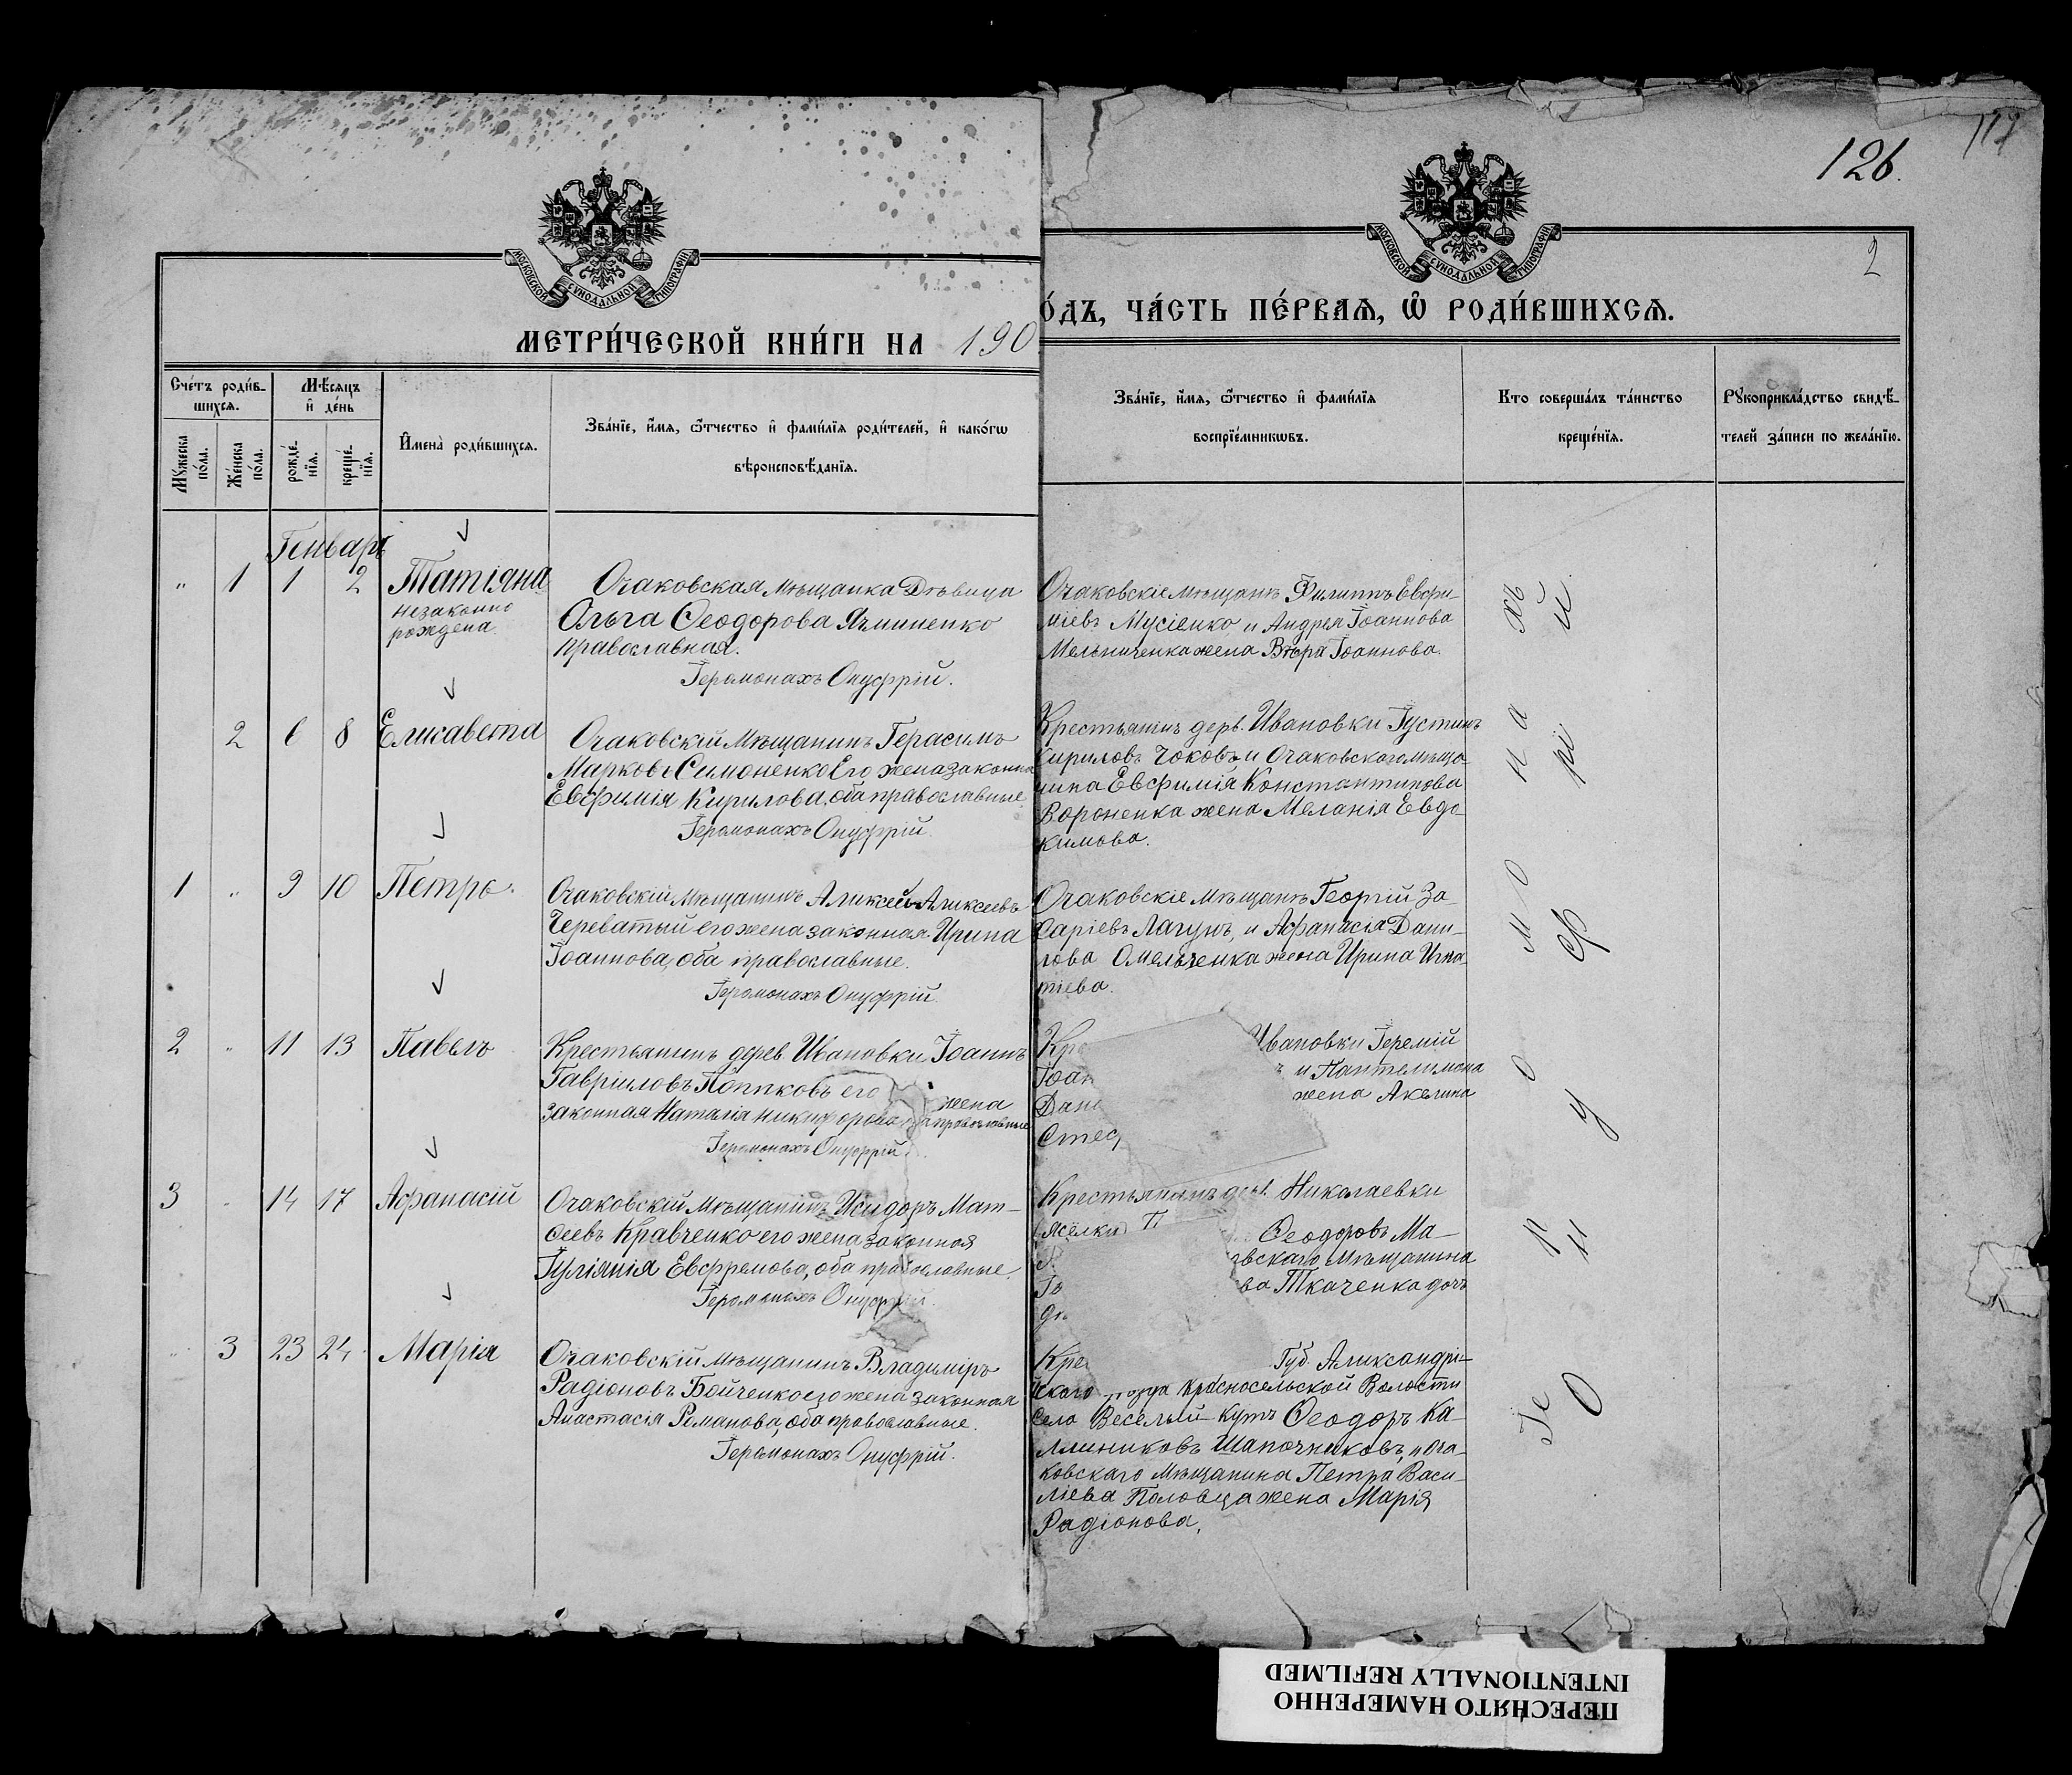 126.
2
МОСКОВСКОЙ СѴНОДАЛЬНОЙ ТИПОГРАФІИ
МОСКОВСКОЙ СѴНОДАЛЬНОЙ ТИПОГРАФІИ
МЕТРИ́ЧЕСКОЙ КНИ́ГИ НА 190
О́ДЪ, ЧА́СТЬ ПЕ́РВАѦ, Ѽ РОДИ́ВШИХСѦ.
Сче́тъ роди́в-
шихсѧ.
Мꙋ́жеска по́ла.
Же́нска по́ла.
Мѣ́сѧцъ
и҆ де́нь
рожде́-
нїѧ.
креще́-
нїѧ.
И҆мена̀ роди́вшихсѧ.
Зва́нїе, и҆́мѧ, ѻ҆́тчество и҆ фами́лїѧ роди́телей, и҆ како́гѡ
вѣроисповѣ́данїѧ.
Зва́нїе, и҆́мѧ, ѻ҆́тчество и҆ фами́лїѧ
воспрїе́мникѡвъ.
Кто совершáлъ тáинство
креще́нїѧ.
Рꙋкоприкла́дство свидѣ́-
телей за́писи по жела́нїю.
Генварь
„ 1 1 2 Татіяна
незаконно
рождена.
Очаковская мѣщанка Дѣвица
Ольга Ѳеодорова Ячминенко
православная.
Іеромонахъ Онуфрій.
Очаковскіе мѣщане Филиппъ Евѳи-
міевъ Мусіенко, и Андрея Іоаннова
Мельниченка жена Вѣра Іоаннова.
2 6 8 Елисавета
Очаковскій Мѣщанинъ Герасимъ
Марковъ Симоненко Его жена законна
Евфимія Кирилова, оба православные.
Іеромонахъ Онуфрій.
Крестьянинъ дерв. Ивановки Іустинъ
Кириловъ Чоковъ и Очаковскаго мѣща-
нина Евфимія Константинова
Вороненка жена Меланія Евдо-
кимова.
1 „ 9 10 Петръ.
Очаковскій мѣщанинъ Аликсей Аликсеевъ
Череватый его жена законная Ирина
Іоаннова, оба православные.
Іеромонахъ Онуфрій.
Очаковскіе мѣщане Георгій За-
харіевъ Лагунъ, и Афанасія Дани-
лова Омельченка жена Ирина Игна-
тіева.
2 „ 11 13 Павелъ
Крестьянинъ дерев. Ивановки Іоаннъ
Гавріиловъ Поппковъ его жена
законная Наталія Никифорова православные
Іеромонахъ Онуфрій.
Кре Ивановки Іеремій
Іоан ъ и Пантелимона
Дани жена Акелина
Стеф
3 „ 14 17 Афанасій
Очаковскій Мѣщанинъ Исидоръ Мат-
ѳеевъ Кравченко его жена законная
Іуліянія Евфремова, оба православные.
Іеромонахъ Онуфрій.
Крестьянинъ дерв. Николаевки
(Аселки) П Ѳеодоровъ Ма-
вскаго Мѣщанина
ва Ткаченка дочь
„ 3 23 24 Марія
Очаковскій мѣщанинъ Владиміръ
Радіоновъ Бойченко его жена законная
Анастасія Романова, оба православные.
Іеромонахъ Онуфрій.
Кре Губ. Александрі-
йскаго уѣзда Красносельской Волости
Село Веселый-Кутъ Ѳеодоръ Ка-
линиковъ Шапочниковъ, и Оча-
ковскаго Мѣщанина Петра Васи-
ліева Половца жена Марія
Радіонова.
Іеромонахъ
Онуфрій.
ПЕРЕСНЯТО НАМЕРЕННО
INTENTIONALLY REFILMED